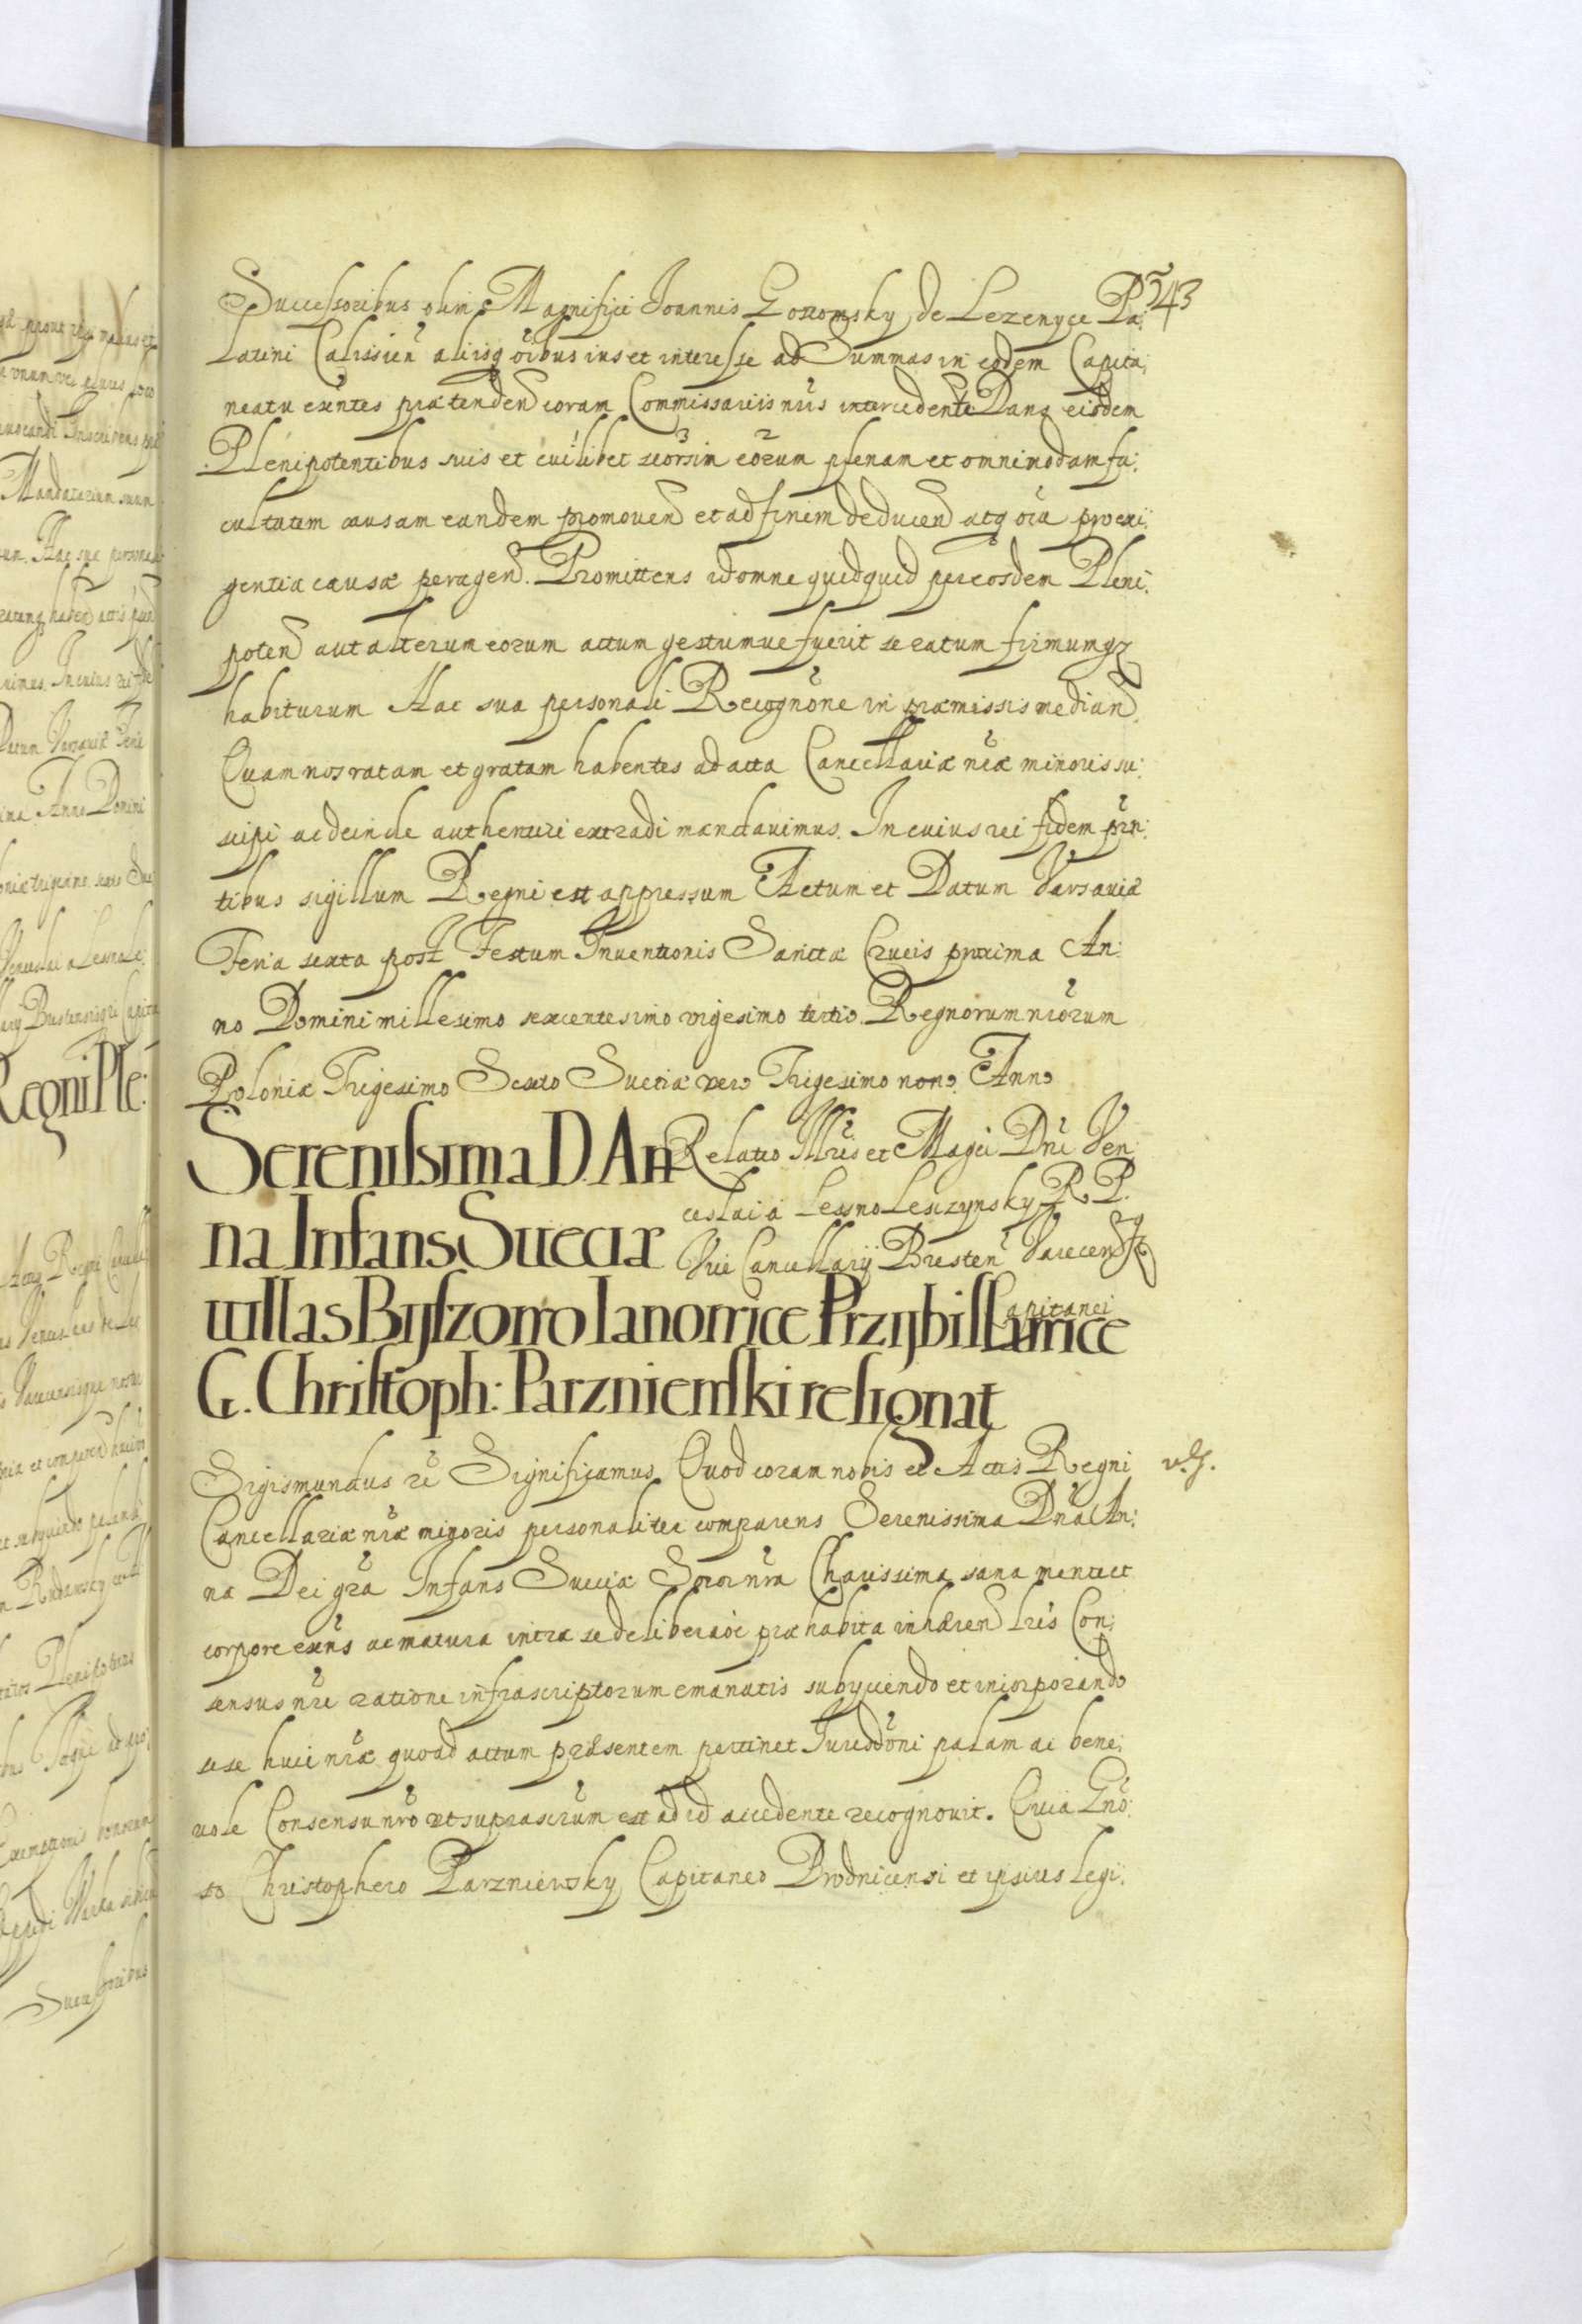 243
Successoribus olim Magnifici Joannis Gostomsky de Lezenyce Pa:
latini Calissien aliisq oibus ius et interesse ad Summas in eodem Capita:
neatu exntes prætenden coram Commissariis nris intercedente Dans eisdem
Plenipotentibus suis et cuilibet seorsim eorum plenam et omnimodam fa:
cultatem causam eandem promovend et ad finem deducend atq oia pro exi:
gentia causæ peragend. Promittens id omne quidquid per eosdem Pleni:
potend aut alterum eorum actum gestumve fuerit se ratum firmumqz
habiturum Hac sua personali Recognone in præmissis median
Quam nos ratam et gratam habentes ad acta Cancellariæ nræ minoris su:
scipi ac deinde authentice extradi mandavimus. In cuius rei fidem prn:
tibus sigillum Regni est appressum Actum et Datum Varsaviæ
Feria sexta post Festum Inventionis Sanctæ Crucis proxima An:
no Domini millesimo sexcentesimo vigesimo tertio Regnorum nrorum
Poloniæ Trigesimo Sexto Suetiæ vero Trigesimo nono Anno
Relatio Illris et Magci Dni Ven
ceslai a Leszno Lesczynsky R. P.
Vice Cancellarij Bresten Varecen
Capitanei
Serenissima D. An
na Infans Sueciæ
willas Byszowo Ianowice Przybisławice
G. Christoph: Parzniewski resignat
Sigismundus rc Significamus Quod coram nobis et Actis Regni
v.s.
Cancellariæ nræ minoris personaliter comparens Serenissima Dna An:
na Dei gra Infans Sueciæ Soror nra Charissima sana mente et
corpore exns ac matura intra se deliberaoe præhabita inhæren lris Con:
sensus nri ratione infrascriptorum emanatis subyciendo et incorporando
sese huic nræ quoad actum præsentem pertinet Jurisddoni palam ac bene:
vole Consensu nro ut suprascrum est ad id accedente recognovit. Quia Gnō:
so Christophero Parzniewsky Capitaneo Brodnicensi et ipsius legi: